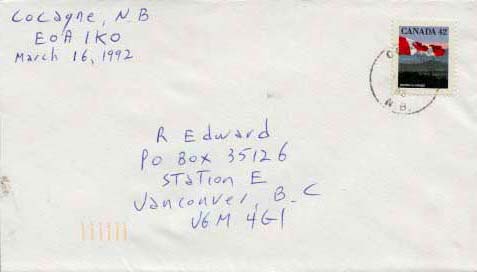 Cocagne, N.B
E0A 1K0
March 16, 1992
CANADA 42
N.B.
R Edward
PO BOX 35126
Station E
Vancouver, B.C
V6M 4G1